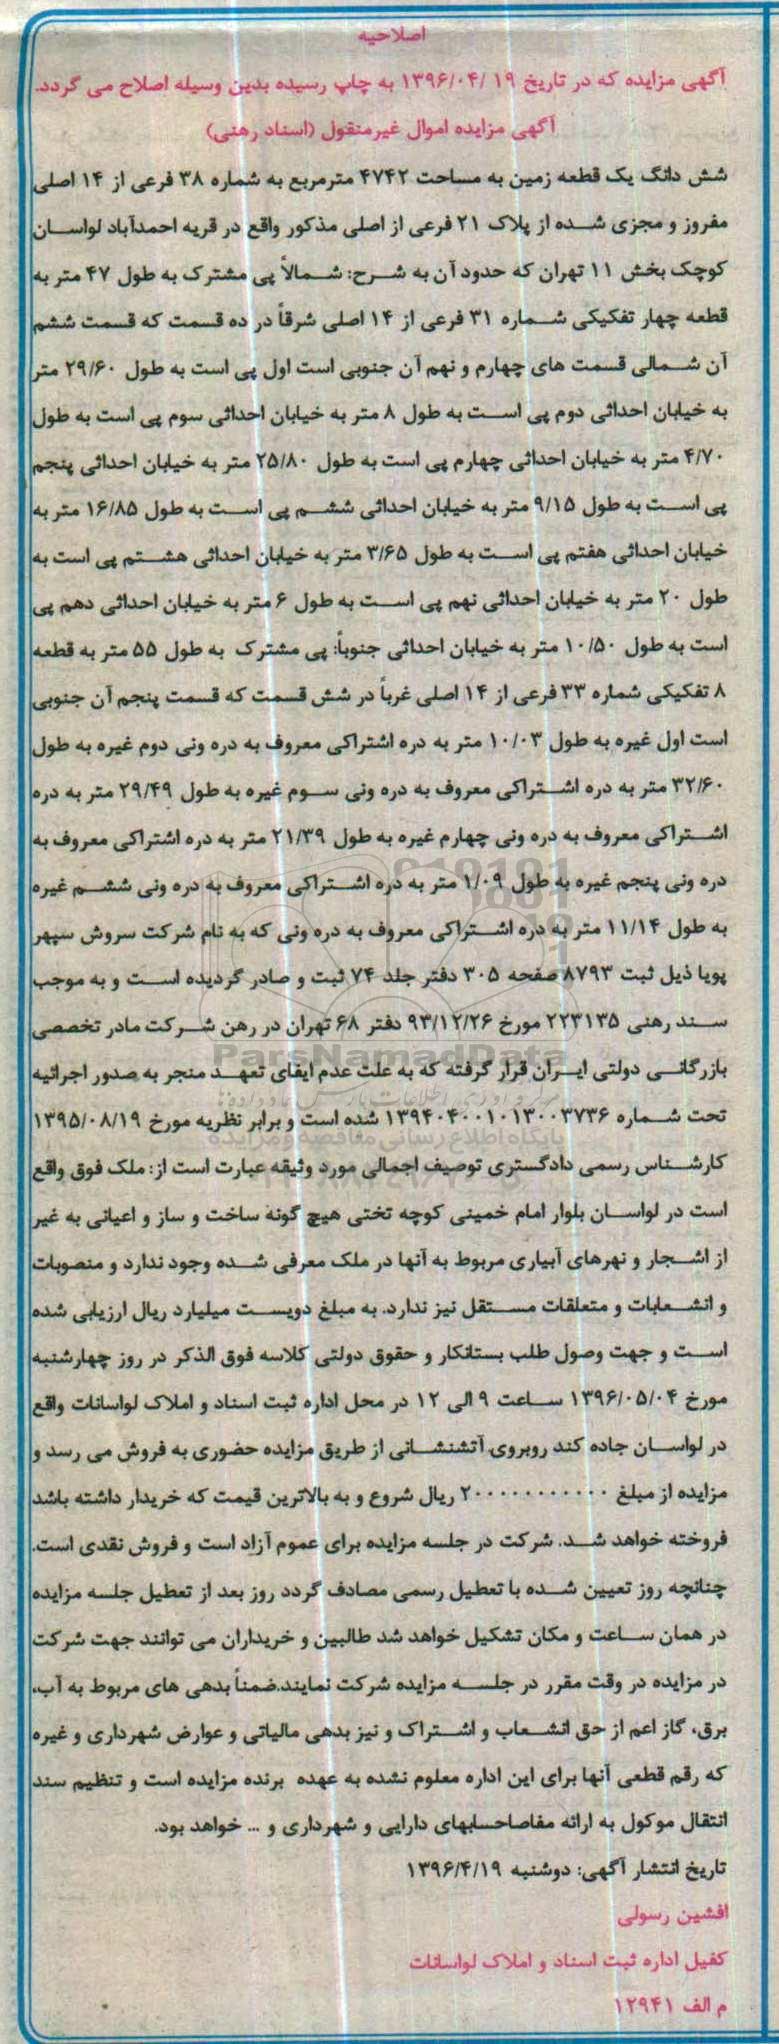 اصلاحیه
آگهی مزایده که در تاریخ ۱۹ /۱۳۹۶/۰۴ به چاپ رسیده بدین وسیله اصلاح می گردد.
آگهی مزایده اموال غیرمنقول (اسناد رهنی)
شش دانگ یک قطعه زمین به مساحت ۴۷۴۲ مترمربع به شماره ۳۸ فرعی از ۱۴ اصلی
مفروز و مجزی شده از پلاک ۲۱ فرعی از اصلی مذکور واقع در قریه احمدآباد لواسان
کوچک بخش ۱۱ تهران که حدود آن به شرح: شمالاً پی مشترک به طول ۴۷ متر به
قطعه چهار تفکیکی شماره ۳۱ فرعی از ۱۴ اصلی شرقاً در ده قسمت که قسمت ششم
آن شمالی قسمت های چهارم و نهم آن جنوبی است اول پی است به طول ۲۹/۶۰ متر
به خیابان احداثی دوم پی است به طول ۸ متر به خیابان احداثی سوم پی است به طول
۴/۷۰ متر به خیابان احداثی چهارم پی است به طول ۲۵/۸۰ متر به خیابان احداثی پنجم
پی است به طول ۹/۱۵ متر به خیابان احداثی ششم پی است به طول ۱۶/۸۵ متر به
خیابان احداثی هفتم پی است به طول ۳/۶۵ متر به خیابان احداثی هشتم پی است به
طول ۲۰ متر به خیابان احداثی نهم پی است به طول ۶ متر به خیابان احداثی دهم پی
است به طول ۱۰/۵۰ متر به خیابان احداثی جنوباً: پی مشترک به طول ۵۵ متر به قطعه
۸ تفکیکی شماره ۳۳ فرعی از ۱۴ اصلی غرباً در شش قسمت که قسمت پنجم آن جنوبی
است اول غیره به طول ۱۰/۰۳ متر به دره اشتراکی معروف به دره ونی دوم غیره به طول
۳۲/۶۰ متر به دره اشتراکی معروف به دره ونی سوم غیره به طول ۲۹/۴۹ متر به دره
اشتراکی معروف به دره ونی چهارم غیره به طول ۲۱/۳۹ متر به دره اشتراکی معروف به
دره ونی پنجم غیره به طول ۱/۰۹ متر به دره اشتراکی معروف به دره ونی ششم غیره
به طول ۱۱/۱۴ متر به دره اشتراکی معروف به دره ونی که به نام شرکت سروش سپهر
پویا ذیل ثبت ۸۷۹۳ صفحه ۳۰۵ دفتر جلد ۷۴ ثبت و صادر گردیده است و به موجب
سند رهنی ۲۲۳۱۳۵ مورخ ۹۳/۱۲/۲۶ دفتر ۶۸ تهران در رهن شرکت مادر تخصصی
ParsNamadData
بازرگانی دولتی ایران قرار گرفته که به علت عدم ایفای تعهد منجر به صدور اجرائیه
تحت شماره ۱۳۹۴۰۴۰۰۱۰۱۳۰۰۳۷۳۶ شده است و برابر نظریه مورخ ۱۳۹۵/۰۸/۱۹
پایگاه اطلاع رسانی مناقصه و مزایده
کارشناس رسمی دادگستری توصیف اجمالی مورد وثیقه عبارت است از: ملک فوق واقع
است در لواسان بلوار امام خمینی کوچه تختی هیچ گونه ساخت و ساز و اعیانی به غیر
از اشجار و نهرهای آبیاری مربوط به آنها در ملک معرفی شده وجود ندارد و منصوبات
و انشعابات و متعلقات مستقل نیز ندارد. به مبلغ دویست میلیارد ریال ارزیابی شده
است و جهت وصول طلب بستانکار و حقوق دولتی کلاسه فوق الذکر در روز چهارشنبه
مورخ ۱۳۹۶/۰۵/۰۴ ساعت ۹ الی ۱۲ در محل اداره ثبت اسناد و املاک لواسانات واقع
در لواسان جاده کند روبروی آتشنشانی از طریق مزایده حضوری به فروش می رسد و
مزایده از مبلغ ۲۰۰۰۰۰۰۰۰۰۰۰ ریال شروع و به بالاترین قیمت که خریدار داشته باشد
فروخته خواهد شد. شرکت در جلسه مزایده برای عموم آزاد است و فروش نقدی است.
چنانچه روز تعیین شده با تعطیل رسمی مصادف گردد روز بعد از تعطیل جلسه مزایده
در همان ساعت و مکان تشکیل خواهد شد طالبین و خریداران می توانند جهت شرکت
در مزایده در وقت مقرر در جلسه مزایده شرکت نمایند.ضمناً بدهی های مربوط به آب،
برق، گاز اعم از حق انشعاب و اشتراک و نیز بدهی مالیاتی و عوارض شهرداری و غیره
که رقم قطعی آنها برای این اداره معلوم نشده به عهده برنده مزایده است و تنظیم سند
انتقال موکول به ارائه مفاصاحسابهای دارایی و شهرداری و ... خواهد بود.
تاریخ انتشار آگهی: دوشنبه ۱۳۹۶/۴/۱۹
افشین رسولی
کفیل اداره ثبت اسناد و املاک لواسانات
م الف ۱۲۹۴۱